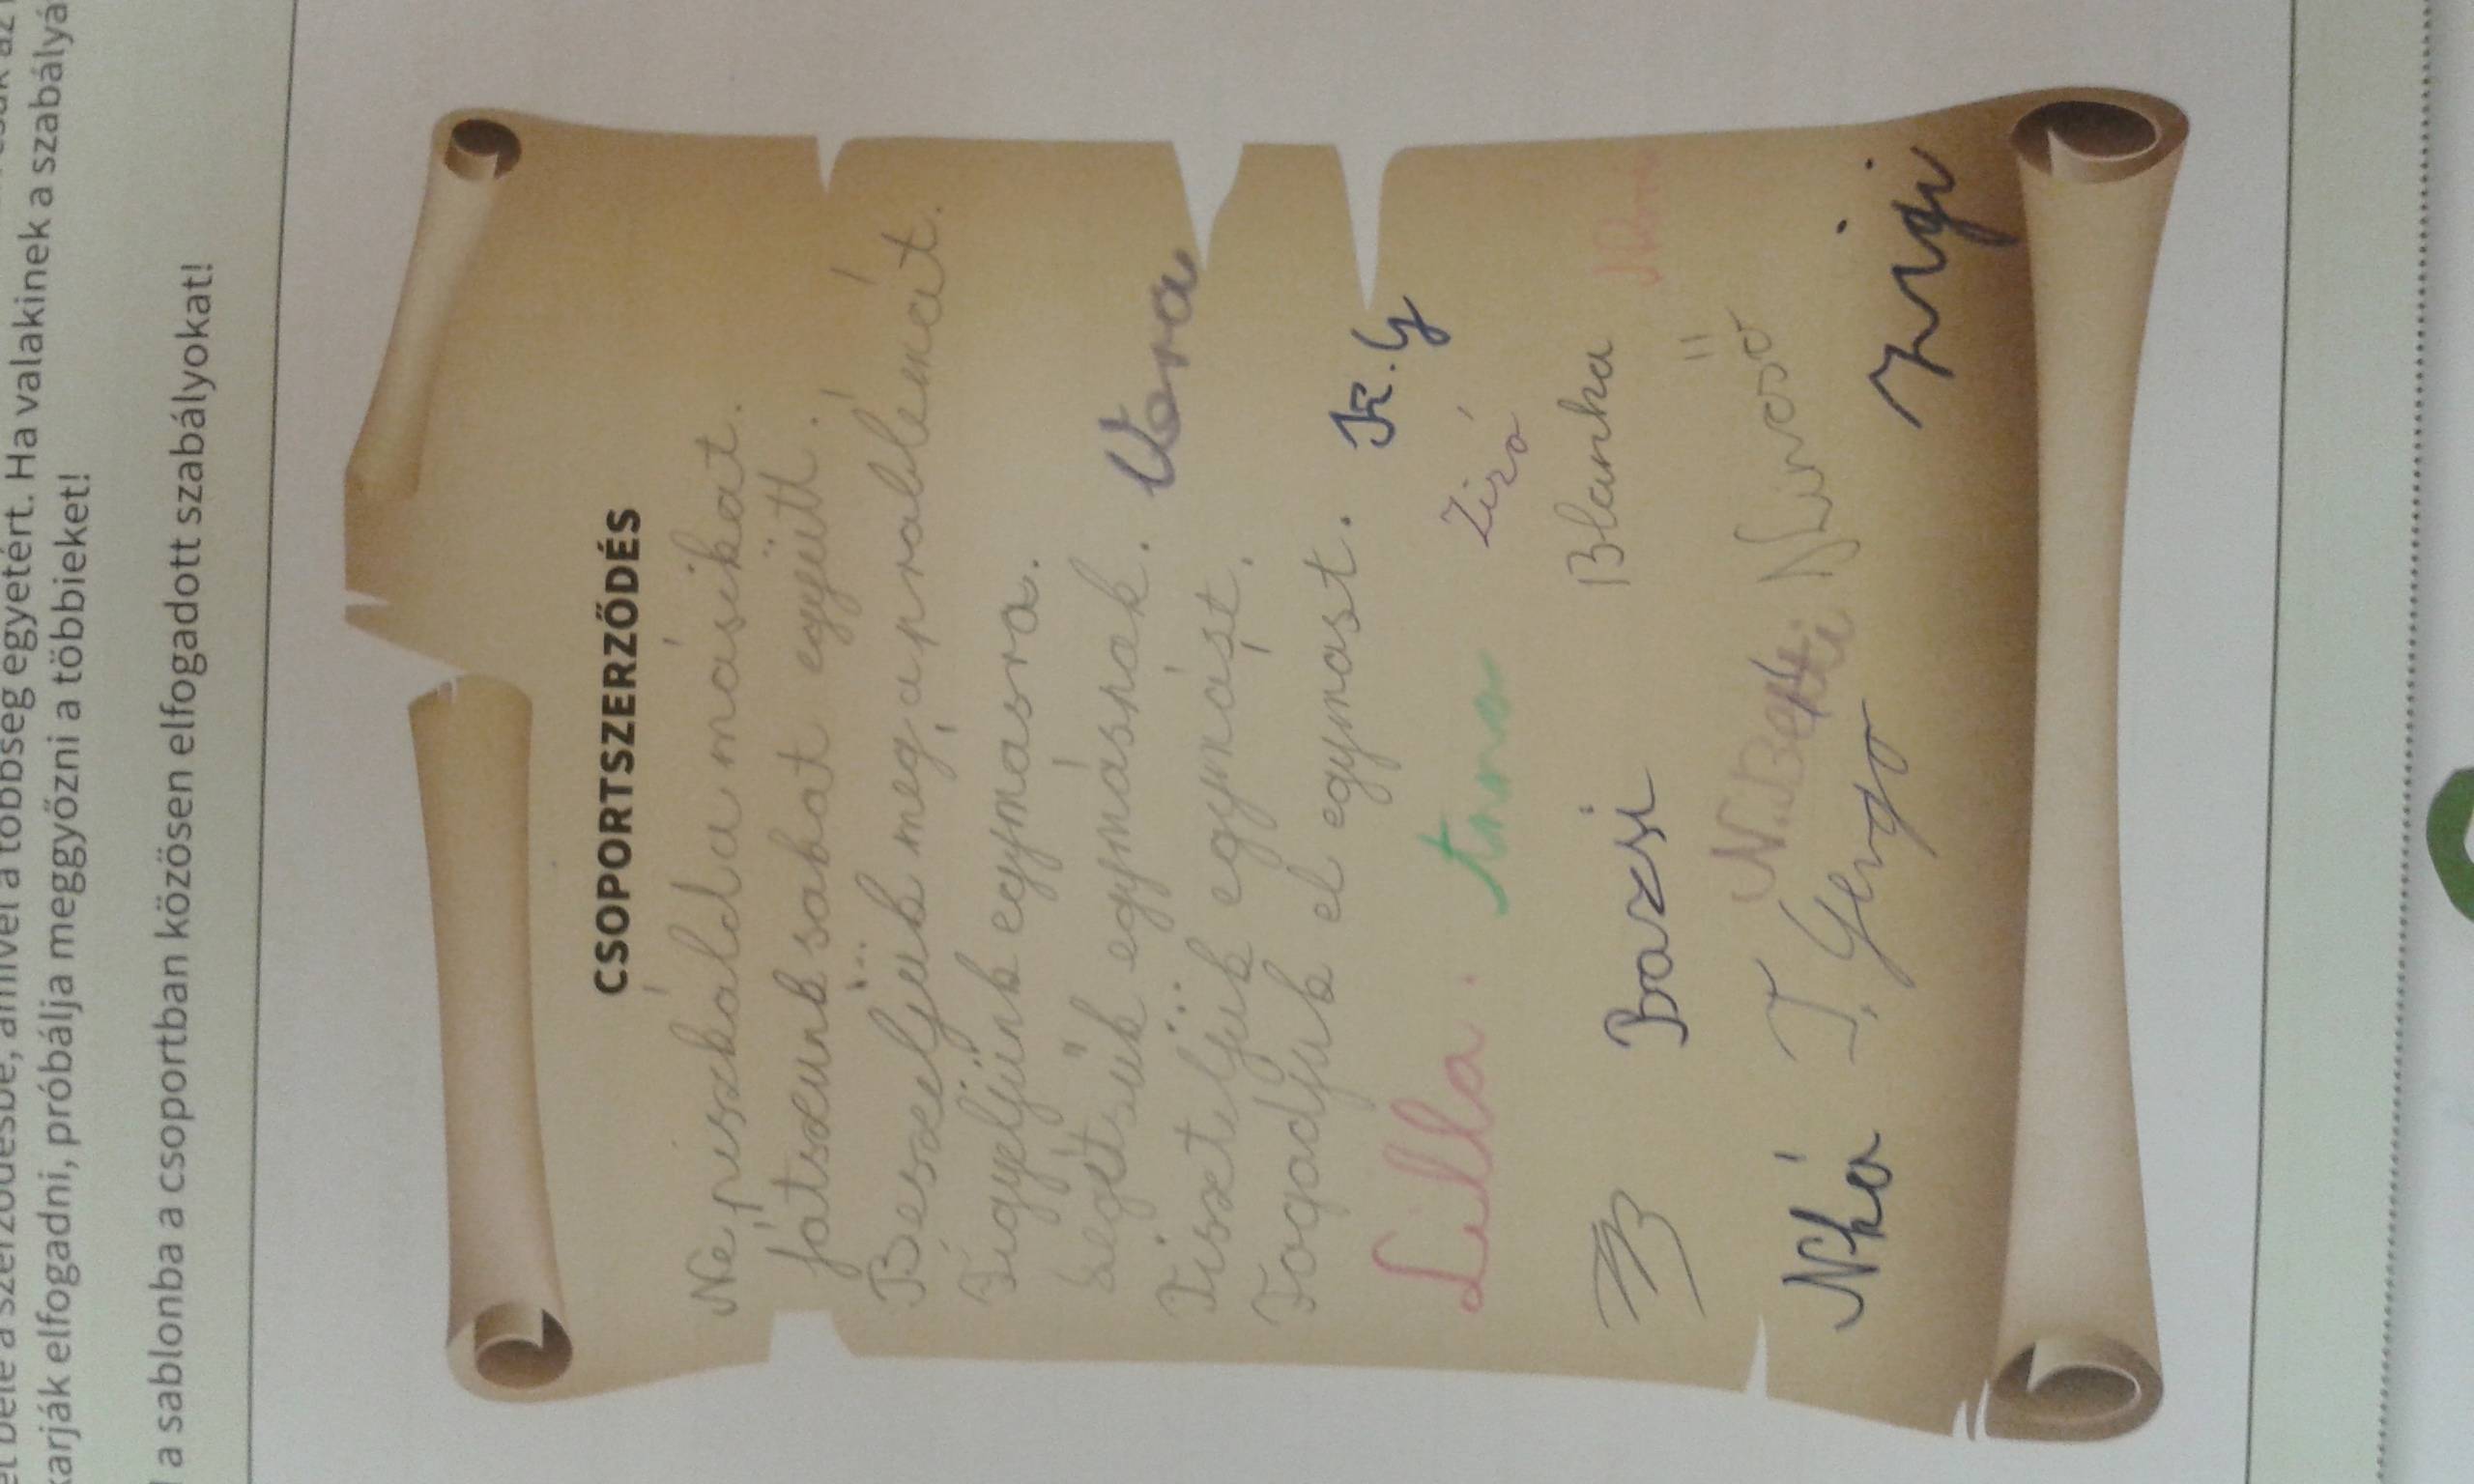 et bele a szerződésbe, amivel a többség egyetért. Ha valakinek a szabályá
karják elfogadni, próbálja meggyőzni a többieket!
a sablonba a csoportban közösen elfogadott szabályokat!
CSOPORTSZERZŐDÉS
Ne piszkáld a másikat.
játszunk sokat együtt.
Beszéljük meg a problémát.
Figyeljünk egymásra.
Segítsük egymásnak.
Vera
Tiszteljük egymást.
Fogadjuk el egymast.
K.G
Lilla
Zizó
Bazsi
Blanka
N.Betti
T. Gergo